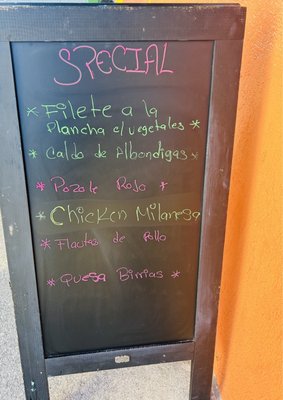 SPECIAL
* Filete a la
Plancha c/ vegetales *
* Caldo de Albondigas *
* Pozole Rojo *
* Chicken Milanesa
* Flautas de Pollo
* Quesa Birrias *